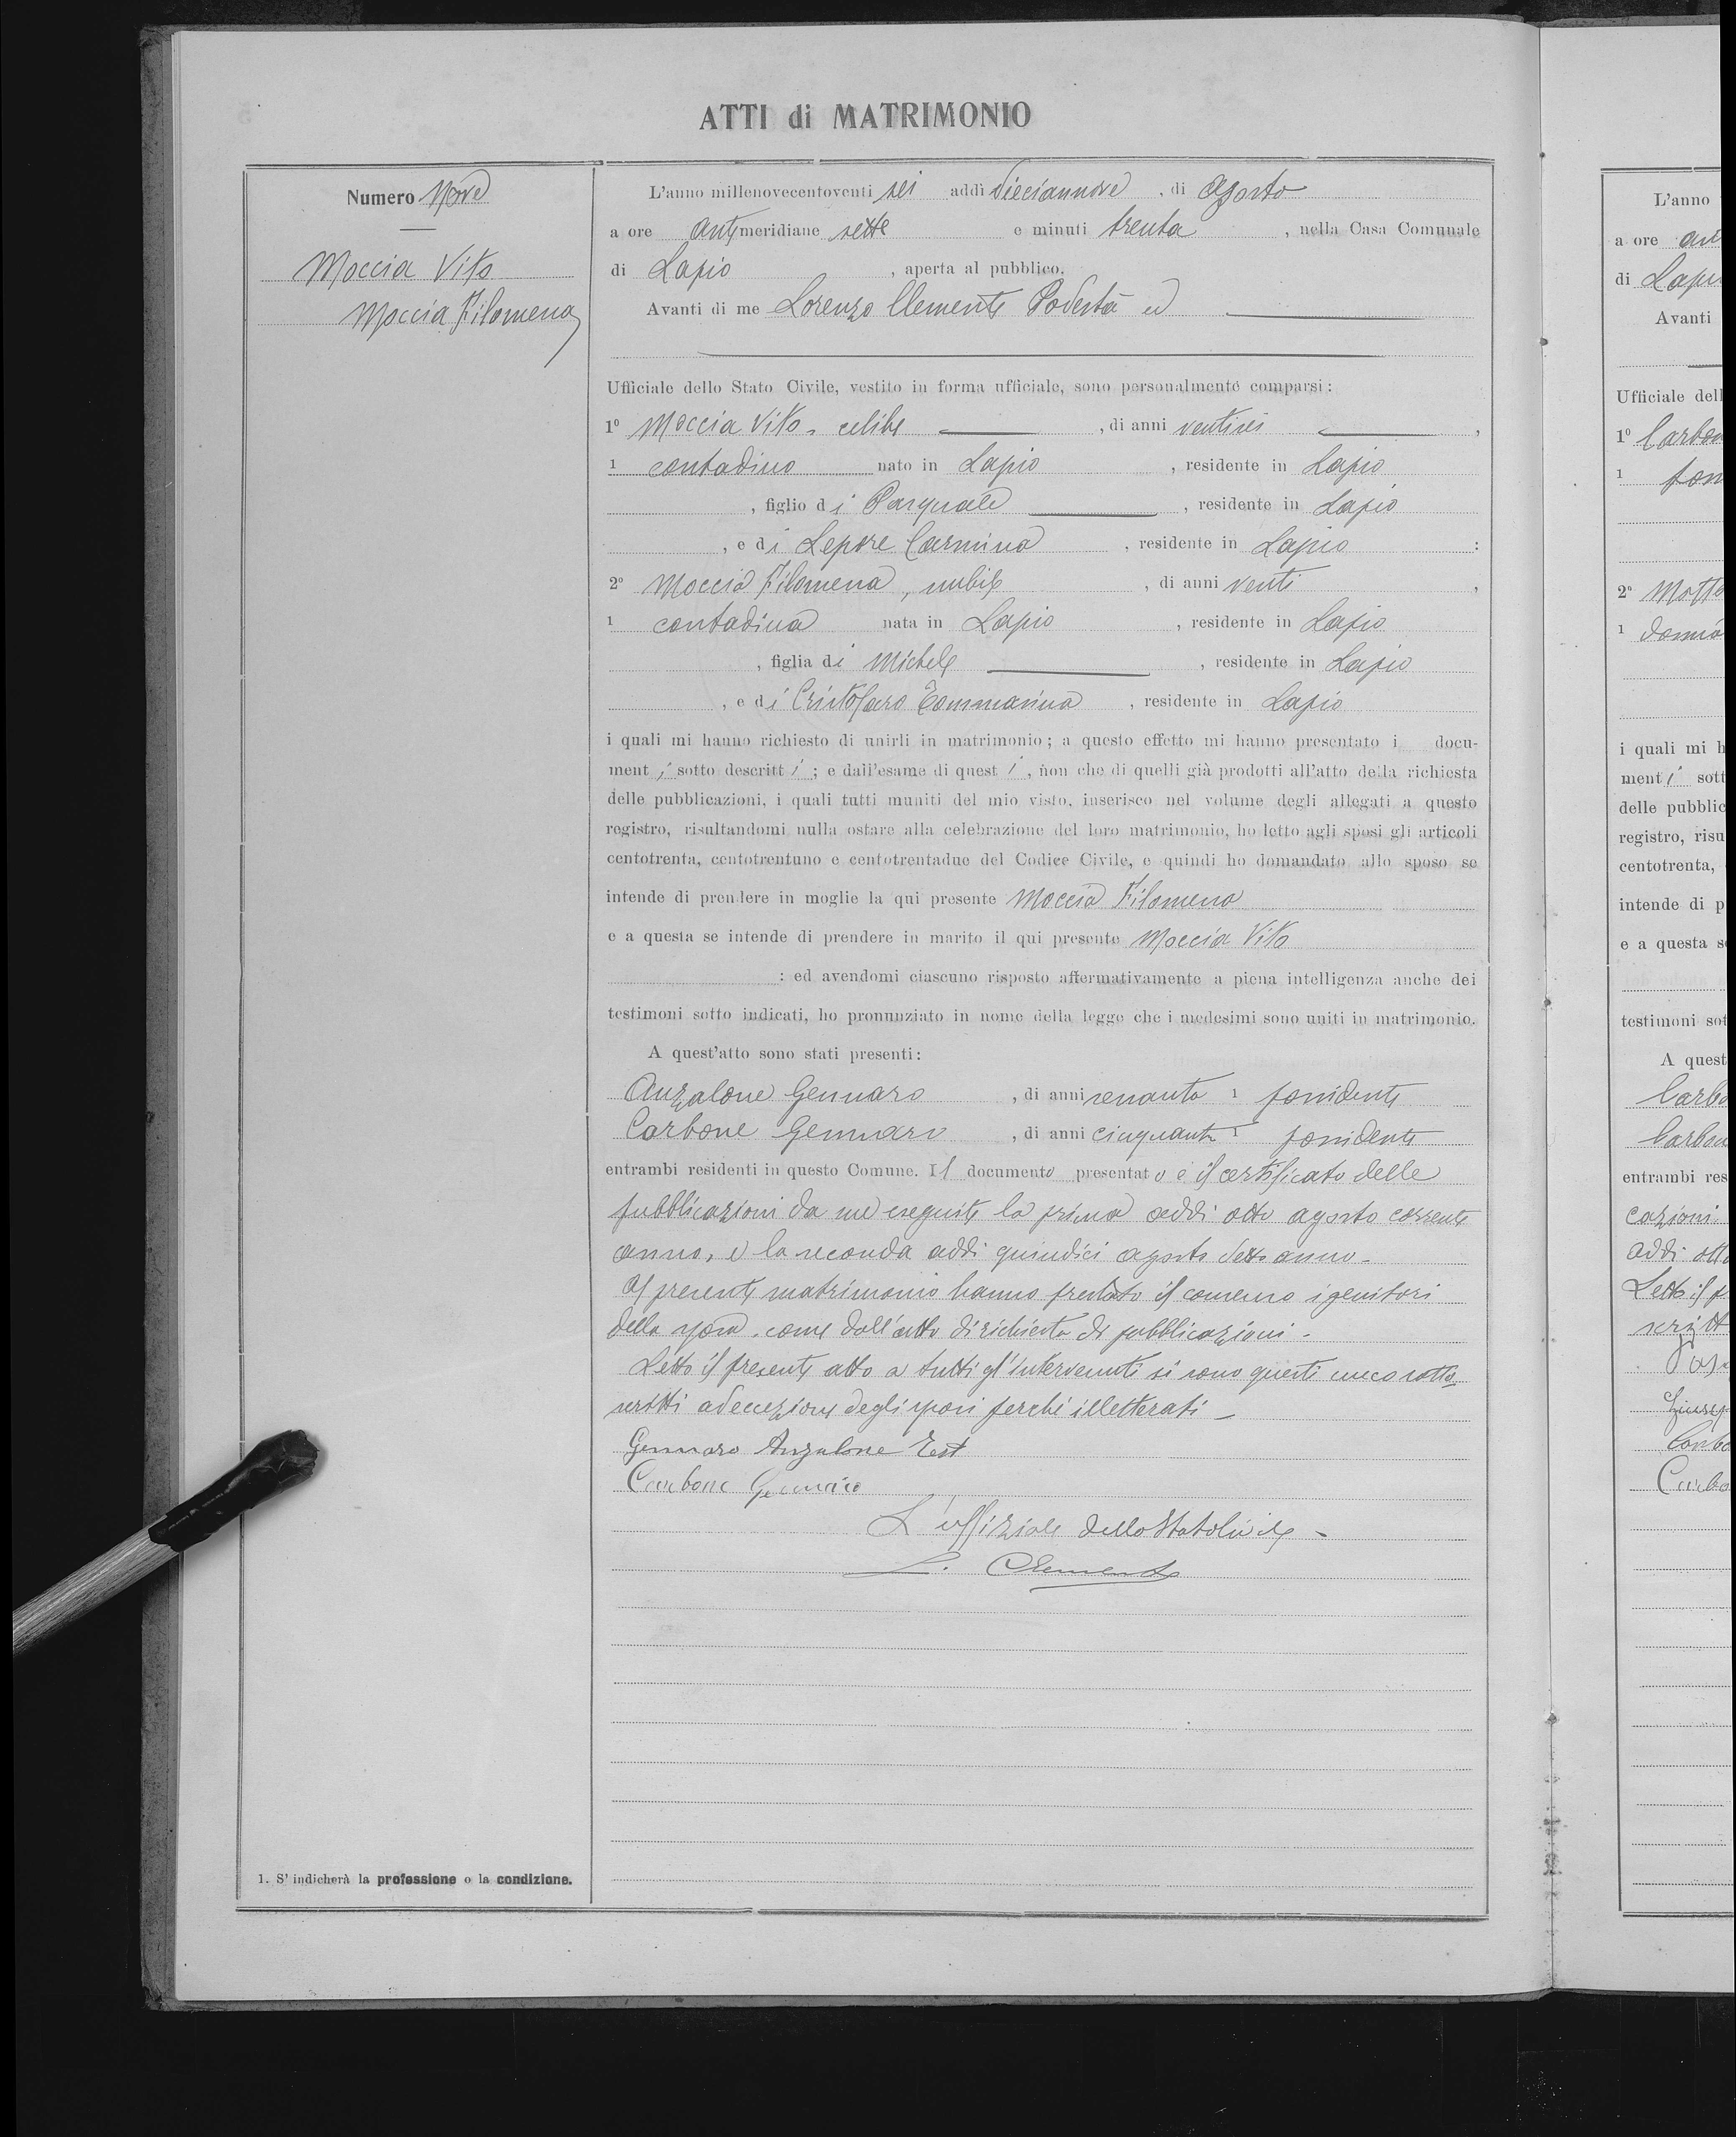 ATTI di MATRIMONIO
Numero Nove
Moccia Vito
Moccia Filomena
1. S'indicherà la professione o la condizione.
L'anno millenovecentoventi sei addì diciannove, di Agosto
a ore antimeridiane sette e minuti trenta, nella Casa Comunale
di Lapio, aperta al pubblico.
Avanti di me Lorenzo Clemente Podestà ed
Ufficiale dello Stato Civile, vestito in forma ufficiale, sono personalmente comparsi:
1º Moccia Vito, celibe, di anni ventisei,
1 contadino nato in Lapio, residente in Lapio
, figlio di Pasquale, residente in Lapio
, e di Lepore Carmina, residente in Lapio:
2º Moccia Filomena, nubile, di anni venti,
1 contadina nata in Lapio, residente in Lapio
, figlia di Michele, residente in Lapio
, e di Cristofaro Tommasina, residente in Lapio
i quali mi hanno richiesto di unirli in matrimonio; a questo effetto mi hanno presentato i docu-
ment i sotto descritt i; e dall'esame di quest i, non che di quelli già prodotti all'atto della richiesta
delle pubblicazioni, i quali tutti muniti del mio visto, inserisco nel volume degli allegati a questo
registro, risultandomi nulla ostare alla celebrazione del loro matrimonio, ho letto agli sposi gli articoli
centotrenta, centotrentuno e centotrentadue del Codice Civile, e quindi ho domandato allo sposo se
intende di prendere in moglie la qui presente Moccia Filomena
e a questa se intende di prendere in marito il qui presente Moccia Vito
: ed avendomi ciascuno risposto affermativamente a piena intelligenza anche dei
testimoni sotto indicati, ho pronunziato in nome della legge che i medesimi sono uniti in matrimonio.
A quest'atto sono stati presenti:
Anzalone Gennaro, di anni sessanta 1 possidente
Carbone Gennaro, di anni cinquanta 1 possidente
entrambi residenti in questo Comune. Il documento presentato è il certificato delle
pubblicazioni da me eseguite la prima addì otto agosto corrente
anno, e la seconda addì quindici agosto detto anno.
Al presente matrimonio hanno prestato il consenso i genitori
della sposa, come dall'atto di richiesta di pubblicazioni.
Letto il presente atto a tutti gl'intervenuti si sono questi meco sotto
scritti ad eccezione degli sposi perché illetterati
Gennaro Anzalone Test
Carbone Gennaro
L'uffiziale dello Stato Civile
L. Clemente
L'anno
a ore
di
Avanti
Ufficiale dell
1º
1
2º
1
i quali mi h
menti sott
delle pubblic
registro, risu
centotrenta,
intende di p
e a questa s
testimoni sot
A quest
entrambi res
cazioni
addì
Letto il p